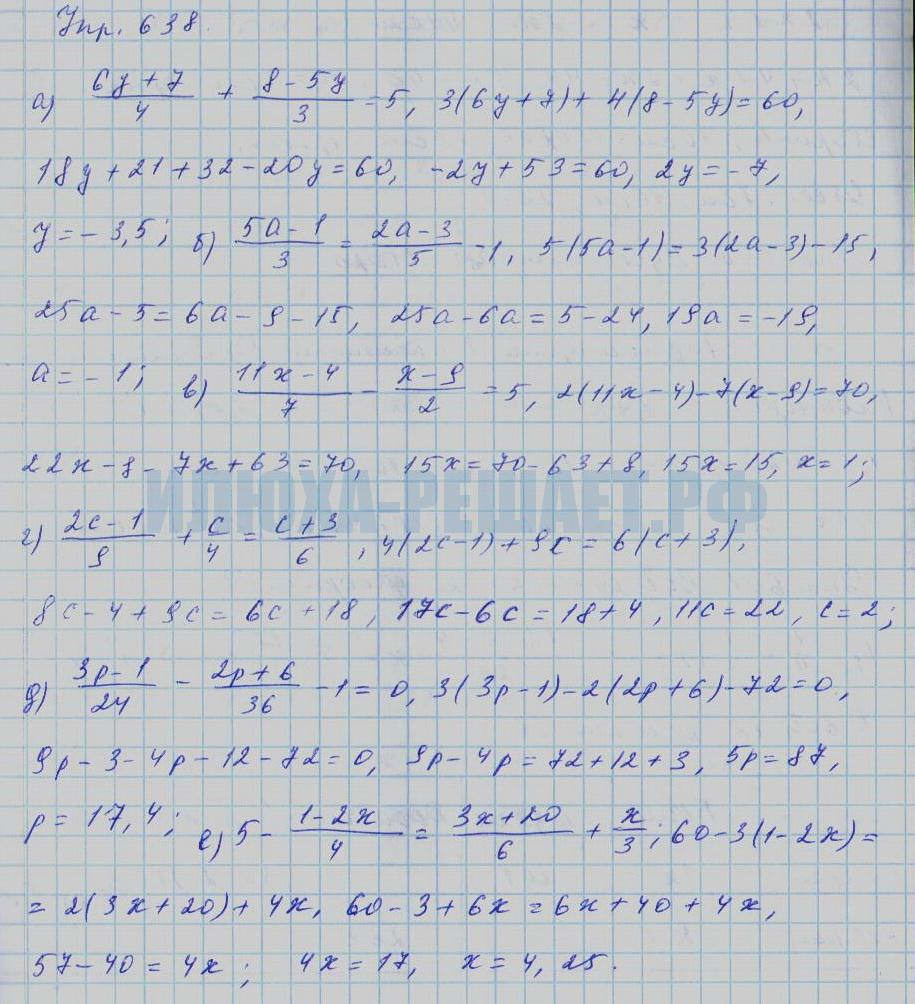 Упр. 638.
а) (6y + 7)/4 + (8 - 5y)/3 = 5, 3(6y + 7) + 4(8 - 5y) = 60,
18y + 21 + 32 - 20y = 60, -2y + 53 = 60, 2y = -7,
y = -3,5; б) (5a - 1)/3 = (2a - 3)/5 - 1, 5(5a - 1) = 3(2a - 3) - 15,
25a - 5 = 6a - 9 - 15, 25a - 6a = 5 - 24, 19a = -19,
a = -1; в) (11x - 4)/7 - (x - 9)/2 = 5, 2(11x - 4) - 7(x - 9) = 70,
22x - 8 - 7x + 63 = 70, 15x = 70 - 63 + 8, 15x = 15, x = 1;
ИЛЮХА-РЕШАЕТ.РФ
г) (2c - 1)/9 + c/4 = (c + 3)/6, 4(2c - 1) + 9c = 6(c + 3),
8c - 4 + 9c = 6c + 18, 17c - 6c = 18 + 4, 11c = 22, c = 2;
д) (3p - 1)/24 - (2p + 6)/36 - 1 = 0, 3(3p - 1) - 2(2p + 6) - 72 = 0,
9p - 3 - 4p - 12 - 72 = 0, 9p - 4p = 72 + 12 + 3, 5p = 87,
p = 17,4; е) 5 - (1 - 2x)/4 = (3x + 20)/6 + x/3; 60 - 3(1 - 2x) =
= 2(3x + 20) + 4x, 60 - 3 + 6x = 6x + 40 + 4x,
57 - 40 = 4x; 4x = 17, x = 4,25.